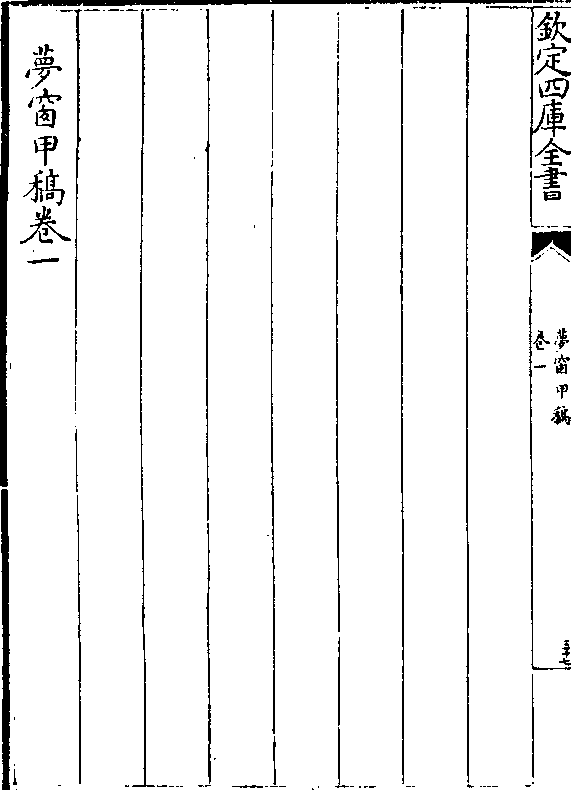 欽定四庫全書
夢窗甲稿
卷一
三十七
夢窗甲稿卷一